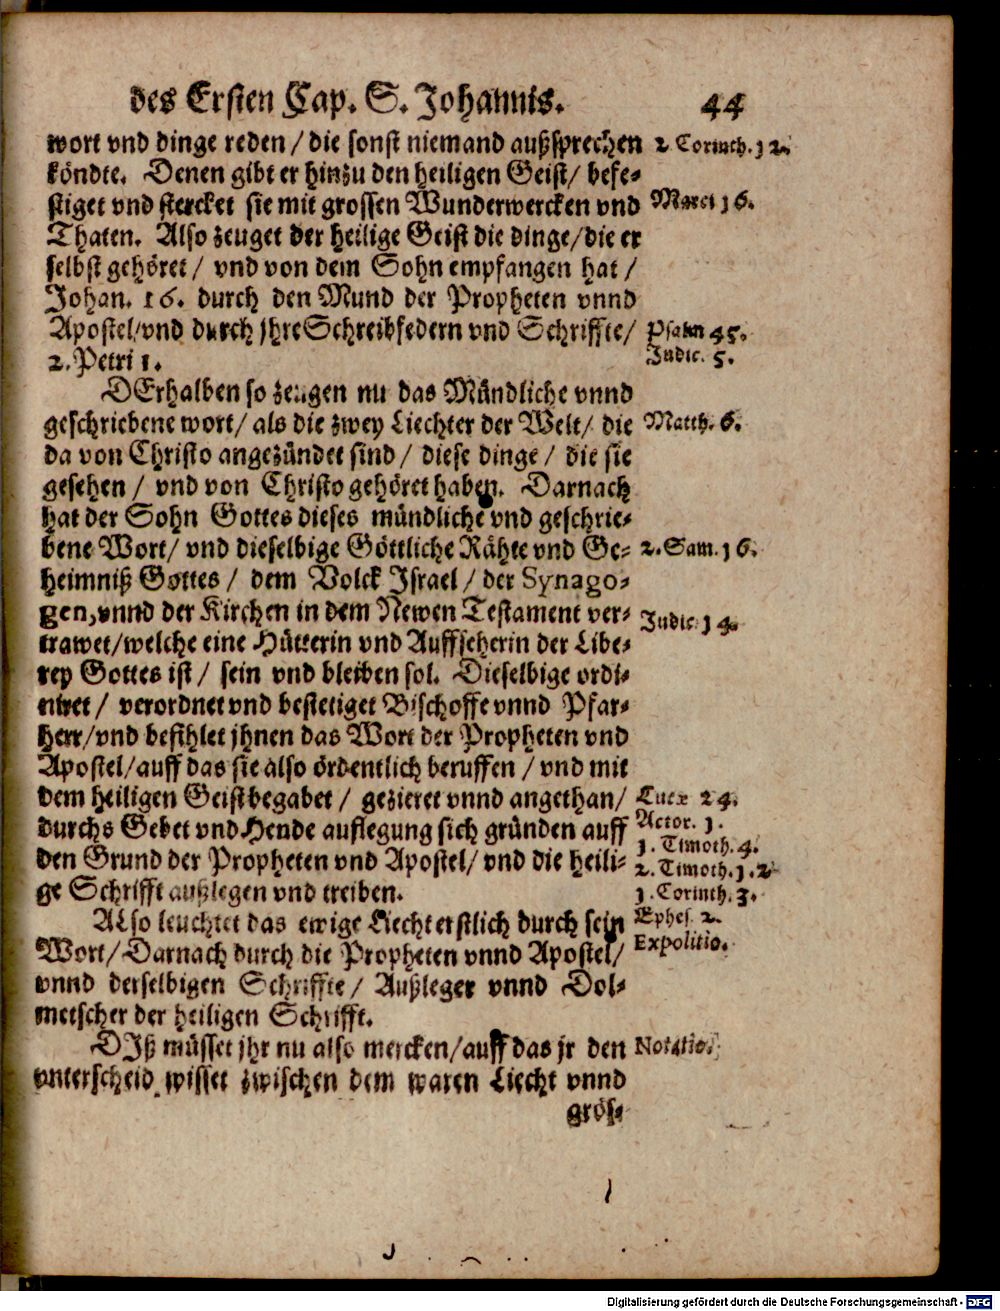 des Ersten Cap. S. Johannis. 44
wort vnd dinge reden / die sonst niemand außsprechen
köndte. Denen gibt er hinzu den heiligen Geist/ befe-
stiget vnd stercket sie mit grossen Wunderwercken vnd
Thaten. Also zeuget der heilige Geist die dinge/die er
selbst gehöret / vnd von dem Sohn empfangen hat /
Johan. 16. durch den Mund der Propheten vnnd
Apostel/vnd durch jhre Schreibfedern vnd Schriffte/
2. Petri 1.
DErhalben so zeugen nu das Mündliche vnnd
geschriebene wort/ als die zwey Liechter der Welt/ die
da von Christo angezündet sind / diese dinge / die sie
gesehen / vnd von Christo gehöret haben. Darnach
hat der Sohn Gottes dieses mündliche vnd geschrie-
bene Wort/ vnd dieselbige Göttliche Rähte vnd Ge-
heimniß Gottes / dem Volck Israel / der Synago-
gen, vnnd der Kirchen in dem Newen Testament ver-
trawet/welche eine Hütterin vnd Auffseherin der Libe-
rey Gottes ist / sein vnd bleiben sol. Dieselbige ordi-
niret / verordnet vnd bestetiget Bischoffe vnnd Pfar-
herr/vnd befihlet jhnen das Wort der Propheten vnd
Apostel/auff das sie also ördentlich beruffen / vnd mit
dem heiligen Geist begabet / gezieret vnnd angethan/
durchs Gebet vnd Hende auflegung sich gründen auff
den Grund der Propheten vnd Apostel/ vnd die heili-
ge Schrifft außlegen vnd treiben.
ALso leuchtet das ewige Liecht erstlich durch sein
Wort/ Darnach durch die Propheten vnnd Apostel/
vnnd derselbigen Schriffte / Außleger vnnd Dol-
metscher der heiligen Schrifft.
DIß müsset jhr nu also mercken/auff das jr den
vnterscheid wisset zwischen dem waren Liecht vnnd
grös-
2. Corinth. 12.
Marci 16.
Psalm 45.
Judic. 5.
Matth. 6.
2. Sam. 16.
Judic. 14.
Lucæ 24.
Actor. 1.
1. Timoth. 4.
2. Timoth. 1. 2
1. Corinth. 3.
Ephes. 2.
Expolitio.
Notatio.
Digitalisierung gefördert durch die Deutsche Forschungsgemeinschaft - DFG